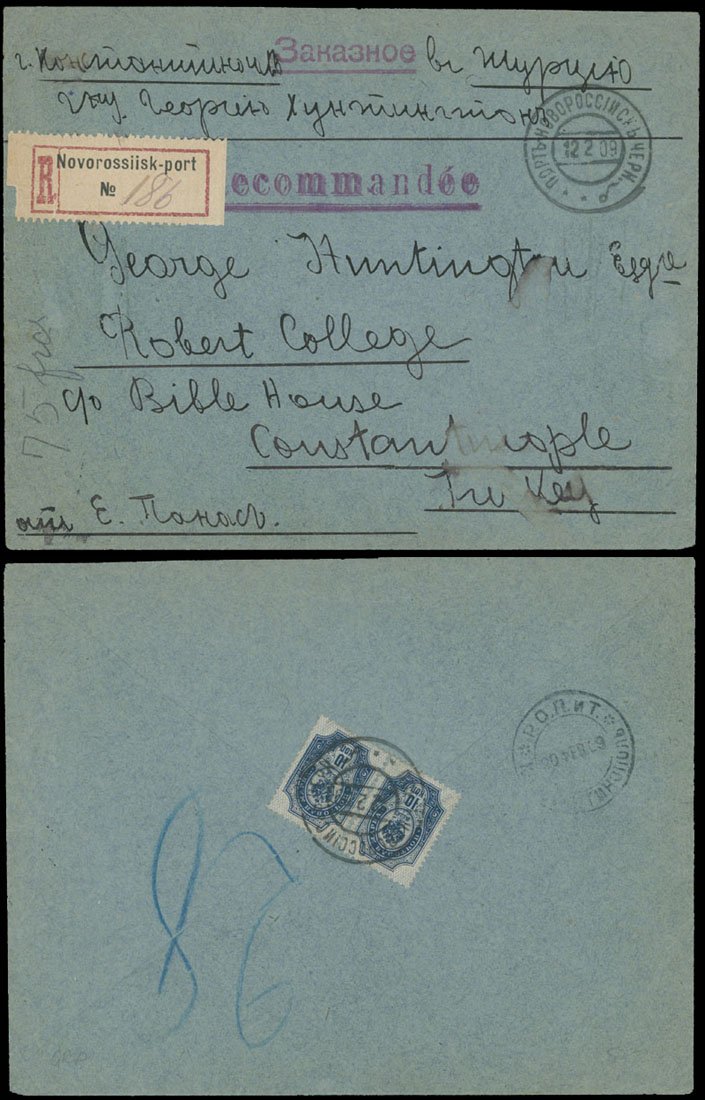 Заказное
г. Константинополь въ Турцію
Гну. Георгію Хунтингтонъ
ПОРТЪ-НОВОРОССІЙСКЪ-ЧЕРН.
12 2 09
Novorossiisk-port
R № 186
ecommandée
George Huntington Esqre
Robert College
c/o Bible House
Constantinople
Turkey
отъ Е. Панасъ.
75 frcs
Р.О.П.иТ.
10 10